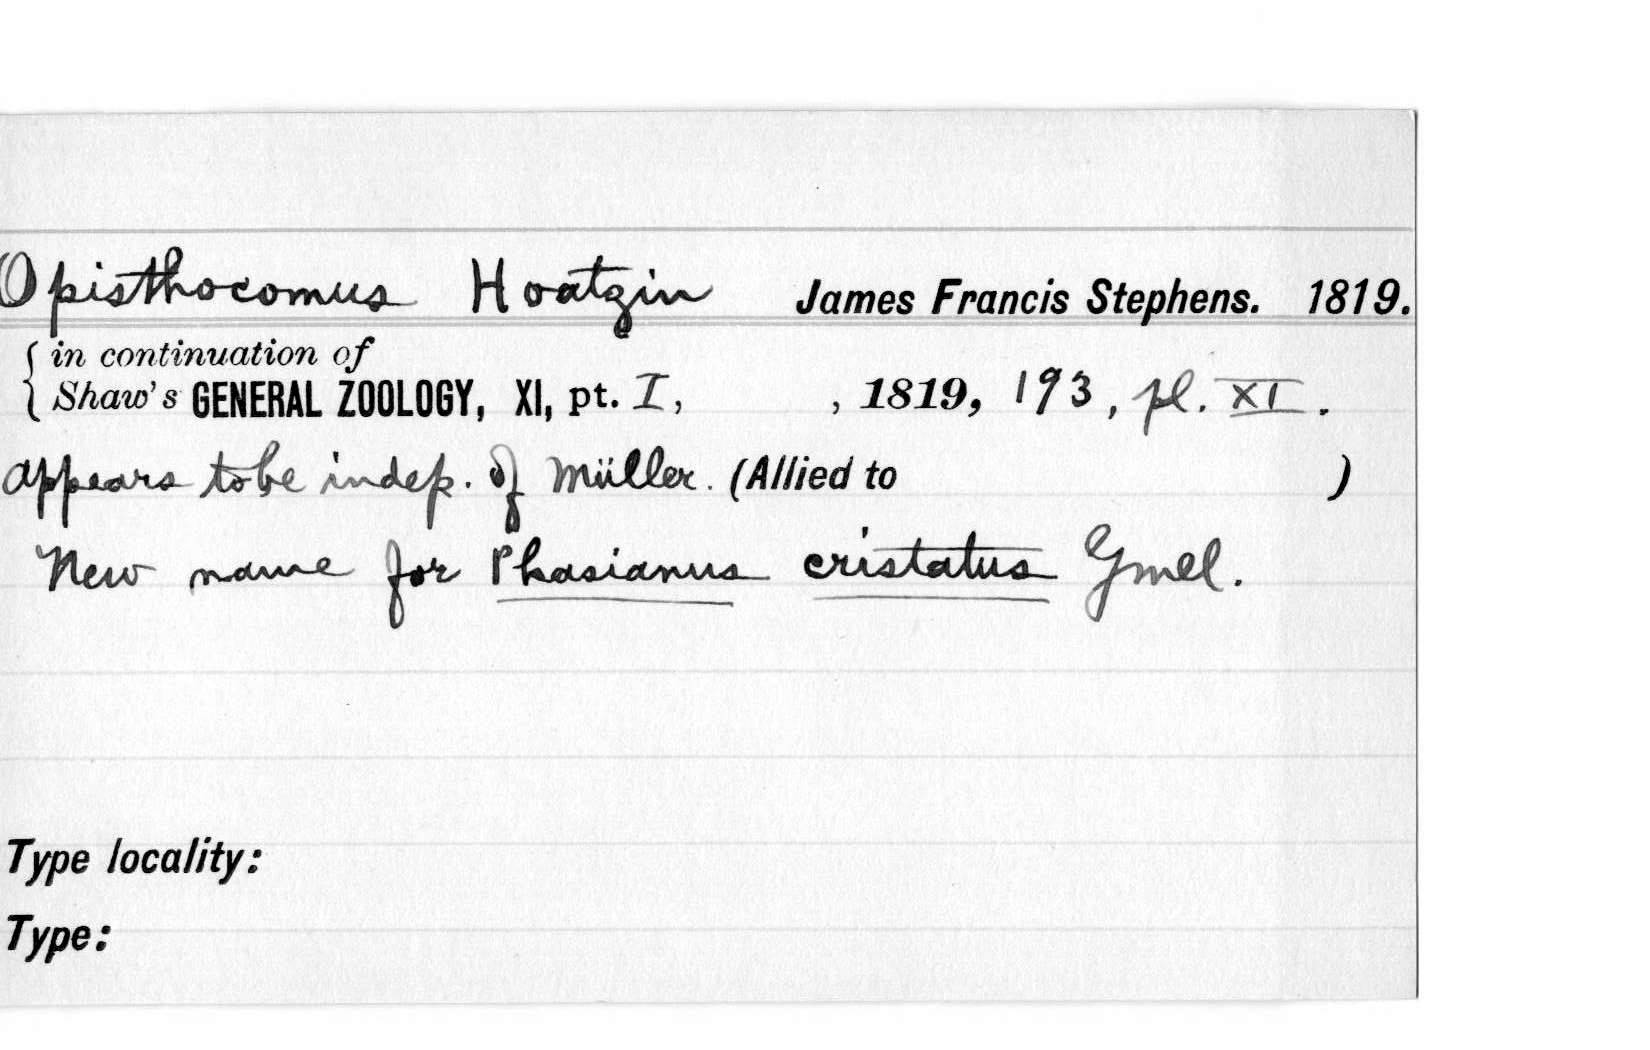 Opisthocomus Hoatzin James Francis Stephens. 1819.
in continuation of
Shaw's GENERAL ZOOLOGY, XI, pt. I, , 1819, 193, pl. XI.
appears to be indep. of Müller. (Allied to )
New name for Phasianus cristatus Gmel.
Type locality:
Type: